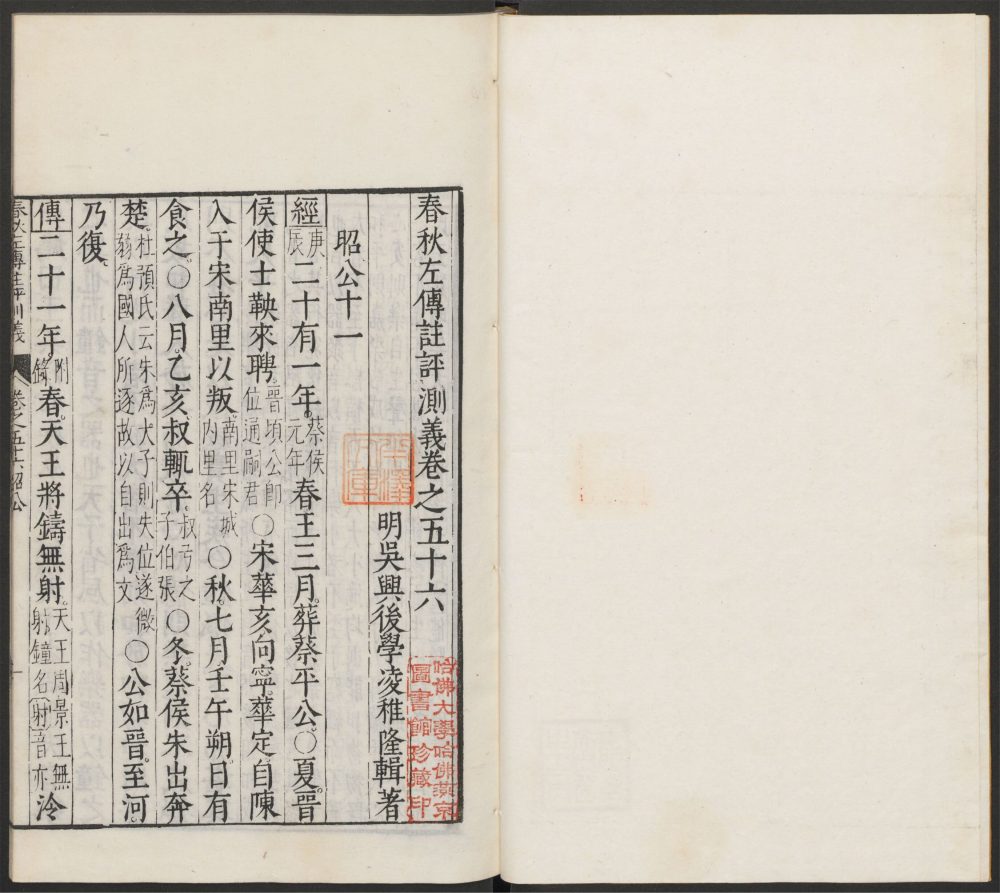 春秋左傳註評測義卷之五十六
明吳興後學凌稚隆輯著
昭公十一
經庚辰二十有一年。蔡侯元年春王三月。葬蔡平公。○夏。晉
侯使士鞅來聘。晉頃公即位通嗣君○宋華亥向寧。華定。自陳
入于宋南里以叛。南里宋城内里名○秋。七月壬午朔。日有
食之。○八月。乙亥叔輒卒。叔弓之子伯張○冬。蔡侯朱出奔
楚。杜預氏云朱爲大子則失位遂微弱爲國人所逐故以自出爲文○公如晉。至河。
乃復。
傳二十一年。附錄春。天王將鑄無射。天王周景王無射鐘名射音亦泠
春秋左傳註評測義 卷之五十六昭公
哈佛大學哈佛燕京
圖書館珍藏印